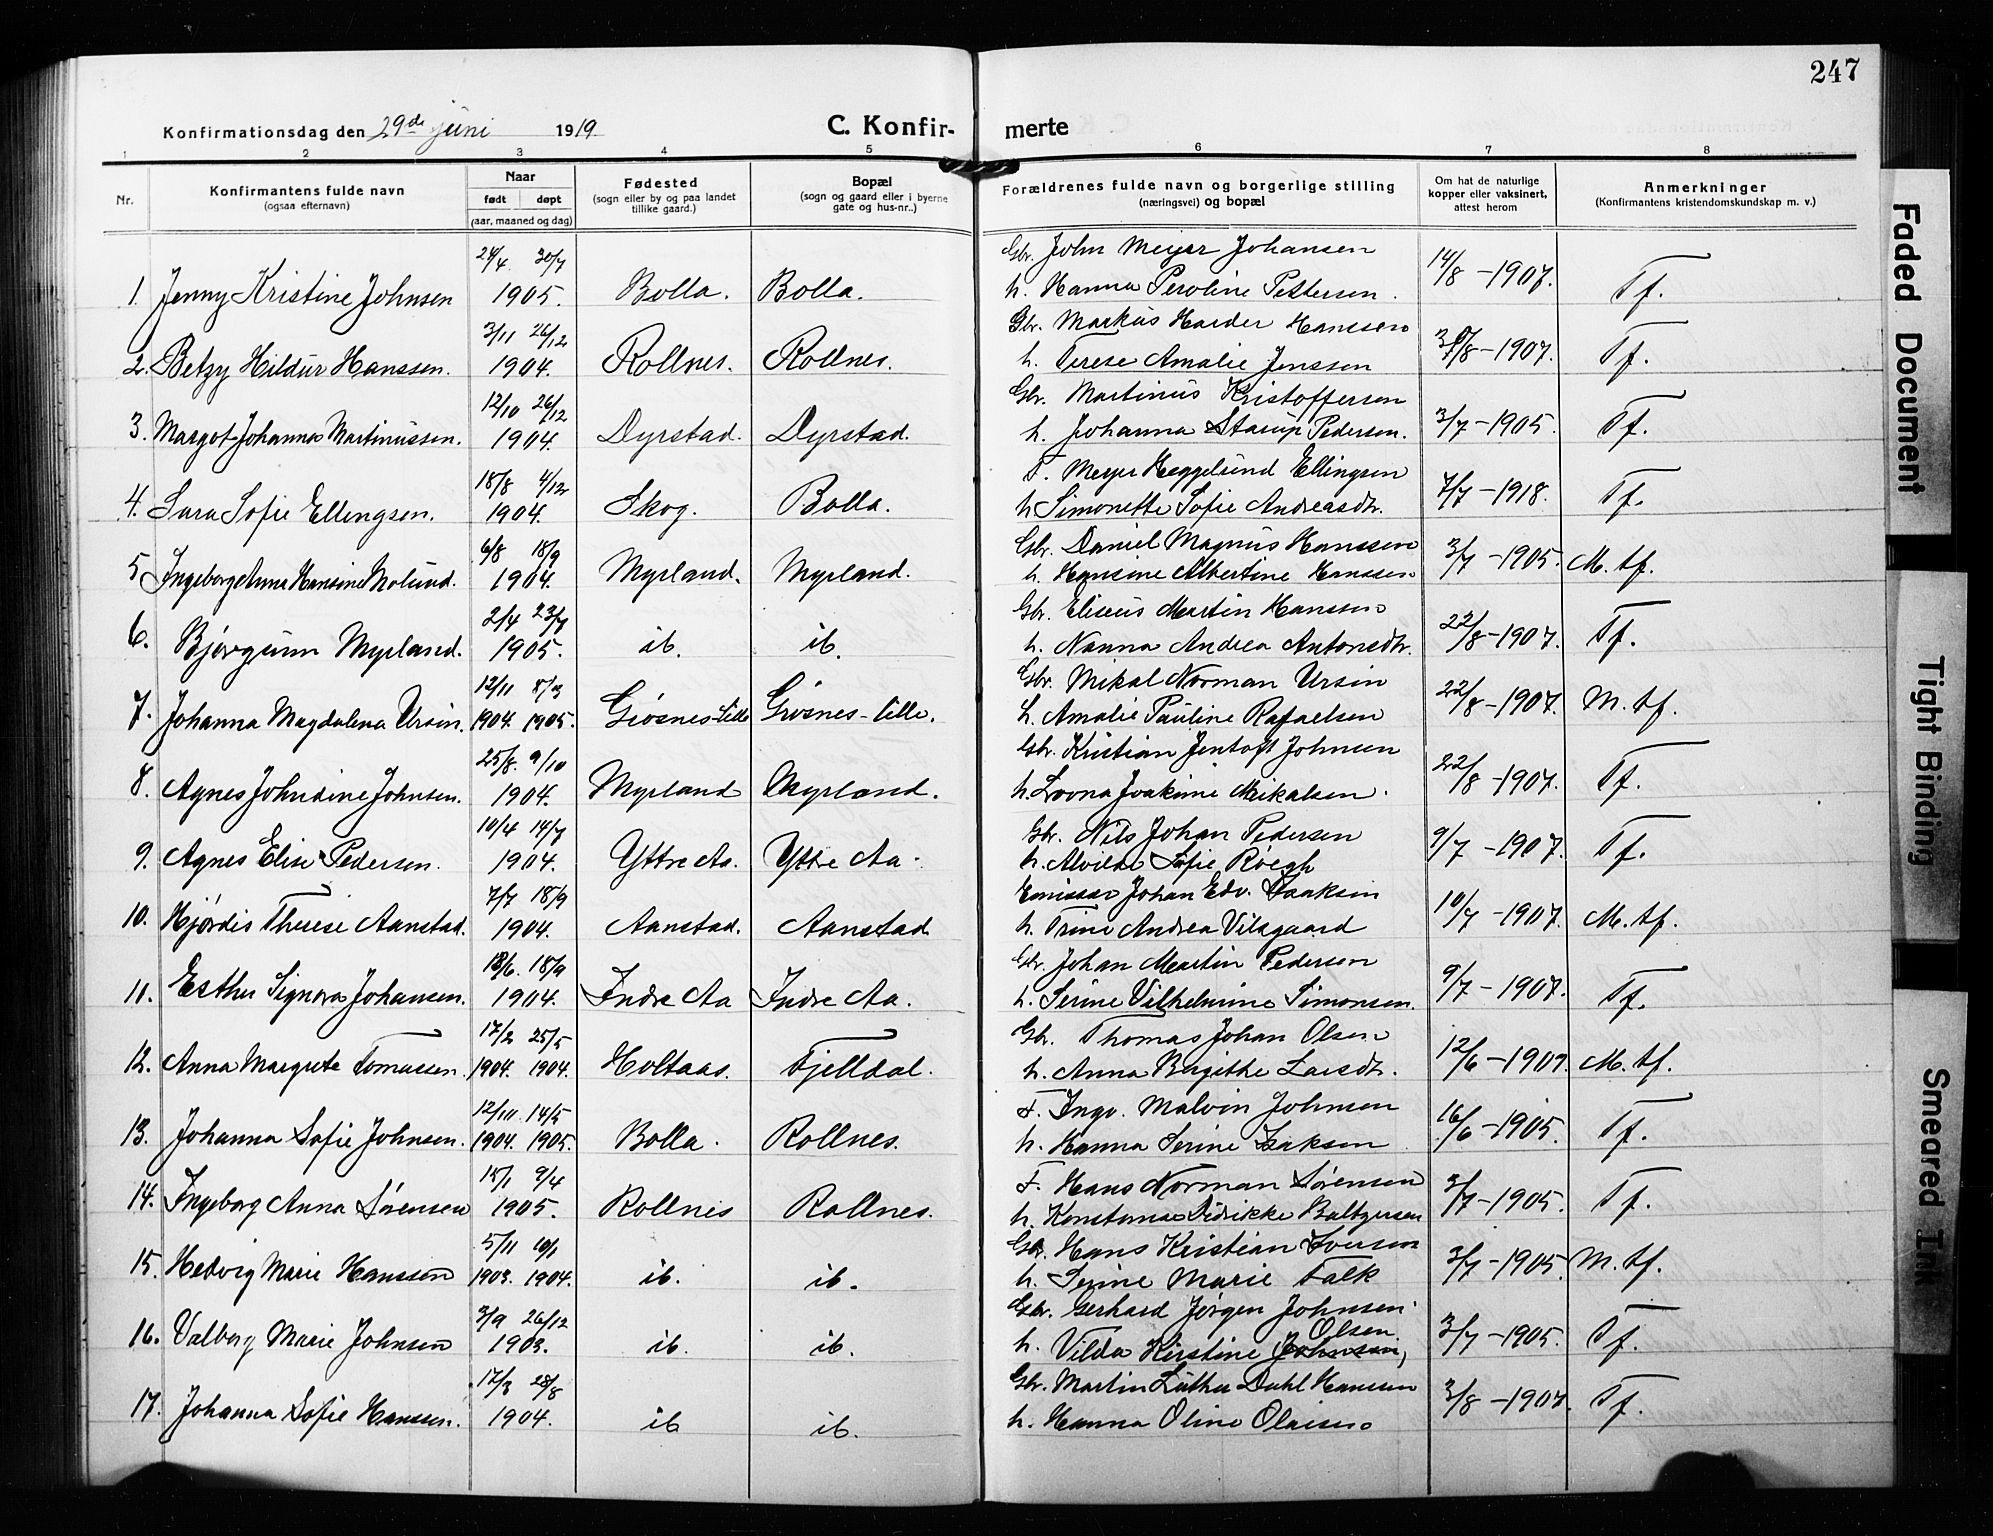 247
Konfirmationsdag den 29de juni 1919
C. Konfir-merte
1 2 3 4 5 6 7 8
Nr.
Konfirmantens fulde navn
(ogsaa efternavn)
Naar
født døpt
(aar, maaned og dag)
Fødested
(sogn eller by og paa landet
tillike gaard.)
Bopæl
(sogn og gaard eller i byerne
gate og hus-nr..)
Forældrenes fulde navn og borgerlige stilling
(næringsvei) og bopæl
Om hat de naturlige
kopper eller vaksinert,
attest herom
Anmerkninger
(Konfirmantens kristendomskundskap m. v.)
24/4 30/7 Gbr. John Meyer Johansen
1. Jenny Kristine Johnsen 1905. Bolla. Bolla. h. Hanna Peroline Pettersen. 14/8-1907. Tf.
3/11 26/12 Gbr. Markus Harder Hanssen
2. Betzy Hildur Hanssen. 1904. Rollnes. Rollnes. h. Terese Amalie Jenssen /8-1907. Tf.
12/10 26/12 Gbr. Martinus Kristoffersen
3. Margot Johanna Martinussen. 1904. Dyrstad. Dyrstad. h. Johanna Starup Pedersen. 3/7-1905. Tf.
18/8 4/12 F. Meyer Heggelund Ellingsen
4. Sara Sofie Ellingsen. 1904. Skog. Bolla. h. Simonette Sofie Andreasdtr. 7/7-1918. Tf.
6/8 18/9 Gbr. Daniel Magnus Hanssen
5 Ingeborg Anna Hansine Molund. 1904. Myrland. Myrland. h. Hansine Albertine Hanssen 3/7-1905. M. tf.
2/4 23/7 Gbr. Eliseus Martin Hanssen
6. Bjørgunn Myrland. 1905. ib. ib. h. Nanna Andrea Antonsdtr. 22/8-1907. Tf.
12/11 8/3 Gbr. Mikal Norman Ursin
7. Johanna Magdalena Ursin. 1904. 1905. Grøsnes-lille Grøsnes-lille. h. Amalie Pauline Rafaelsen 22/8-1907. M. tf.
25/8. 9/10 Gbr. Kristian Jentoft Johnsen
8. Agnes Johndine Johnsen. 1904. Myrland Myrland. h. Lovna Joakime Mikalsen. 22/8-1907. Tf.
10/4 14/7 Gbr. Nils Johan Pedersen
9. Agnes Elise Pedersen. 1904. Yttre Aa. Yttre Aa. h. Alvilde Sofie Røegh 9/7-1907. Tf.
7/7 18/9 Emissær Johan Edv. Isaksen
10. Hjørdis Therese Aanstad. 1904. Aanstad. Aanstad h. Trine Andrea Vilsgaard 10/7-1907. M. tf.
/6. 18/9 Gbr. Johan Martin Pedersen
11. Esther Signora Johansen. 1904. Indre Aa Indre Aa. h. Serine Vilhelmine Simonsen. 9/7-1907. Tf.
17/2 25/5 Gbr. Thomas Johan Olsen
12. Anna Margrete Tomassen. 1904. 1904. Holtaas. Fjelldal. h. Anna Birgithe Larsdtr. 12/6-1907. M. tf.
12/10. 14/5 F. Ingv. Malvin Johnsen
13. Johanna Sofie Johnsen. 1904. 1905. Bolla. Rollnes. h. Hanna Serine Isaksen 16/6-1905. Tf.
15/1 9/4 F. Hans Norman Sørensen
14. Ingeborg Anna Sørensen 1905. Rollnes Rollnes. h. Konstanse Didrikke Baltzersen 3/7-1905. Tf.
5/11 10/1 Gbr. Hans Kristian Iversen
15. Hedvig Marie Hanssen 1903. 1904. ib. ib. h. Serine Marie Falk 3/7-1905 M. tf.
3/9 26/12 Gbr. Gerhard Jørgen Johnsen.
16. Valborg Marie Johnsen 1903. ib. ib. h. Vilda Kirstine Johnsen, Olsen 3/7-1905. Tf.
17/3 28/8 Gbr. Martin Luther Dahl Hanssen
17. Johanna Sofie Hanssen. 1904. ib ib. h. Hanna Oline Olaisen 3/8-1907. Tf.
Faded Document
Tight Binding
Smeared Ink